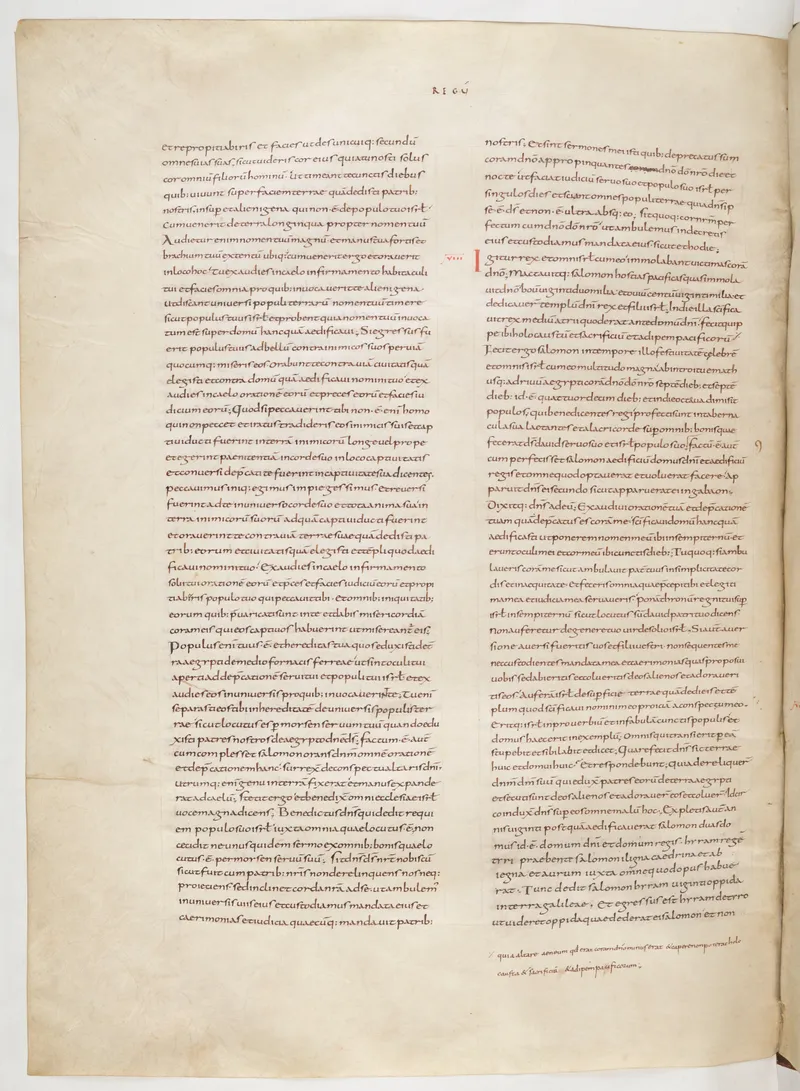 REGŪ
et repropitiaberis et facies ut des unicuiq: secundū
omnes uias suas sicut uideris cor eius quia tu nosti solus
cor omniū filiorū hominū. Ut timeant te cunctis diebus
quib: uiuunt super faciem terrae quā dedisti patrib:
nostris insup et alienigena qui non ē de populo tuo isrł
Cum uenerit de terra longinqua propter nomen tuū
Audietur enim nomen tuū magnū et manus tua fortis et
brachium tuū extentū ubiq: cum uenerit ergo et orauerit
in loco hoc tu exaudies in caelo in firmamento habitaculi
tui et facies omnia pro quib: inuocauerit te alienigena.
Ut discant uniuersi populi terrarū nomen tuū timere
sicut populus tuus isrł et probent quia nomen tuū inuoca
tum est super domū hanc quā aedificaui. Si egressus fu
erit populus tuus ad bellū contra inimicos suos per uiā
quocumq: miseris eos orabunt te contra uiā ciuitatis quā
elegisti et contra domū quā aedificaui nomini tuo et ex
audies in caelo orationē eorū et preces eorū et facies iu
dicium eorū; Quod si peccauerint tibi non ē enī homo
qui non peccet et iratus tradideris eos inimicis suis et cap
tiui ducti fuerint in terrā inimicorū longe uel prope
et egerint paenitentiā in corde suo in loco captiuitatis
et conuersi depcati te fuerint in captiuitate sua dicentes.
peccauimus iniq: egimus impie gessimus et reuersi
fuerint ad te in uniuerso corde suo et tota anima sua in
terra inimicorū suorū ad quā captiui ducti fuerint
et orauerint te contra uiā terrae suae quā dedisti pa
trib: eorum et ciuitatis quā elegisti et tēpli quod aedi
ficaui nomini tuo. Exaudies in caelo in firmamento
solii tui orationē eorū et pces et facies iudiciū eorū et propi
tiaberis populo tuo qui peccauit tibi. et omnib: iniquitatib:
eorum quib: puaricati sunt in te et dabis misericordiā
coram eis qui eos captiuos habuerint ut misereant eis;
Populus enī tuus ē. et hereditas tua quos eduxisti de ter
ra aegypti de medio fornacis ferreae ut sint oculi tui
aperti ad depcationē serui tui et populi tui isrł et ex
audies eos in uniuersis pro quib: inuocauerint te; Tu enī
separasti eos tibi in hereditatē de uniuersis populis ter
rae sicut locutus es p morsen seruum tuū quando edu
xisti patres nostros de aegypto dnē ds; factum ē. aut
cum complesset salomon orans dnm omnē orationē
et depcationem hanc surrex de conspectu altaris dni.
Utrumq: enī genu in terrā fixerat et manus expande
rat ad caelū; stetit ergo et benedix omni ecclesiae isrł
uoce magna dicens. Benedictus dns qui dedit requi
em populo suo isrł iuxta omnia quae locutus ē; non
cecidit ne unus quidem sermo ex omnib: bonis quae lo
cutus ē. per morsen seruū suū. sit dns ds nr nobiscū
sicut fuit cum patrib: nris non derelinquens nos neq:
proiciens sed inclinet corda nra ad se. ut ambulem
in uniuersis uiis eius et custodiamus mandata eius et
caerimonias et iudicia quaecūq: mandauit patrib:
nostris. Et sint sermones mei isti quib: deprecatus sum
coram dnō appropinquantes dnō dō nrō die et
nocte ut faciat iudiciū seruo suo et populo suo isrł per
singulos dies et sciant omnes populi terrae quia dns ip
se ē. ds et non ē. ultra absq: eo. sit quoq: cor nrm per
fectum cum dnō dō nrō ut ambulemus in decretis
eius et custodiamus mandata eius sicut et hodie;
VIIII Igitur rex et omnis isrł cum eo immolabant uictimas corā
dnō. Mactauitq: salomon hostias pacificas quas immola
uit dnō boū uiginti duo milia et ouiū centū uiginti milia et
dedicauer templū dni rex et filii isrł; In die illa scifica
uit rex mediū atrii quod erat ante domū dni. fecit quip
pe ibi holocaustū et sacrificiū et adipem pacificorū
Fecit ergo salomon in tempore illo festiuitatē celebrē
et omnis isrł cum eo multitudo magna ab introitu emath
usq: ad riuū aegypti corā dnō dō nrō septē dieb: et septē
dieb: id ē quattuordecim dieb: et in die octaua dimisit
populos; qui benedicentes regi profecti sunt in taberna
cula sua laetantes et alacri corde sup omnib: bonis quae
fecerat ds dauid seruo suo et isrł populo suo; factū ē aut
cum perfecisset salomon aedificiū domus dni et aedificiū
regis et omne quod optauerat et uoluerat facere. Ap
paruit dns ei secundo sicut apparuerat ei in gabaon.
Dixitq: dns ad eū; Exaudiui orationē tuā et depcationē
tuam quā depcatus es corā me. scificaui domū hanc quā
aedificasti ut ponerem nomen meū ibi in sempiternū et
erunt oculi mei et cor meū ibi cunctis dieb: Tu quoq: si ambu
laueris corā me sicut ambulauit pat tuus in simplicitate cor
dis et in aequitate. Et feceris omnia quae pcepi tibi et legiti
ma mea et iudicia mea seruaueris. Ponā thronū regni tui sup
isrł in sempiternū sicut locutus sū dauid patri tuo dicens
non auferetur de genere tuo uir de solio isrł. Si aut auer
sione auersi fueritis uos et filii uestri. non sequentes me
nec custodientes mandata mea et caerimonias quas proposui
uobis sed abieritis et colueritis deos alienos et adoraueri
tis eos. Auferā isrł de supficie terrae quā dedi eis et tē
plum quod scificaui nomini meo proiciā a conspectu meo.
Eritq: isrł in prouerbiū et in fabulā cunctis populis et
domus haec erit in exemplū; Omnis qui transierit p eā
stupebit et sibilabit et dicet; Quare fecit dns sic terrae
huic et domui huic. Et respondebunt; quia dereliquer
dnm dm suū qui edux patres eorū de terra aegypti
et secuti sunt deos alienos et adorauer eos et coluer. Idcir
co indux dns sup eos omne malū hoc. Expletis aut an
nis uiginti postquā aedificauerat salomon duas do
mus id ē domum dni et domum regis. hyram rege
tyri praebente salomoni ligna caedrina et ab
iegna et aurum iuxta omne quod opus habue
rat. Tunc dedit salomon hyram uiginti oppida
in terra galileae. Et egressus est hyram de tyro
ut uideret oppida quae dederat ei salomon et non
quia altare aeneum qd erat coram dnō minus erat & capere non poterat holo
causta & sacrificiū & adipem pacificorum.